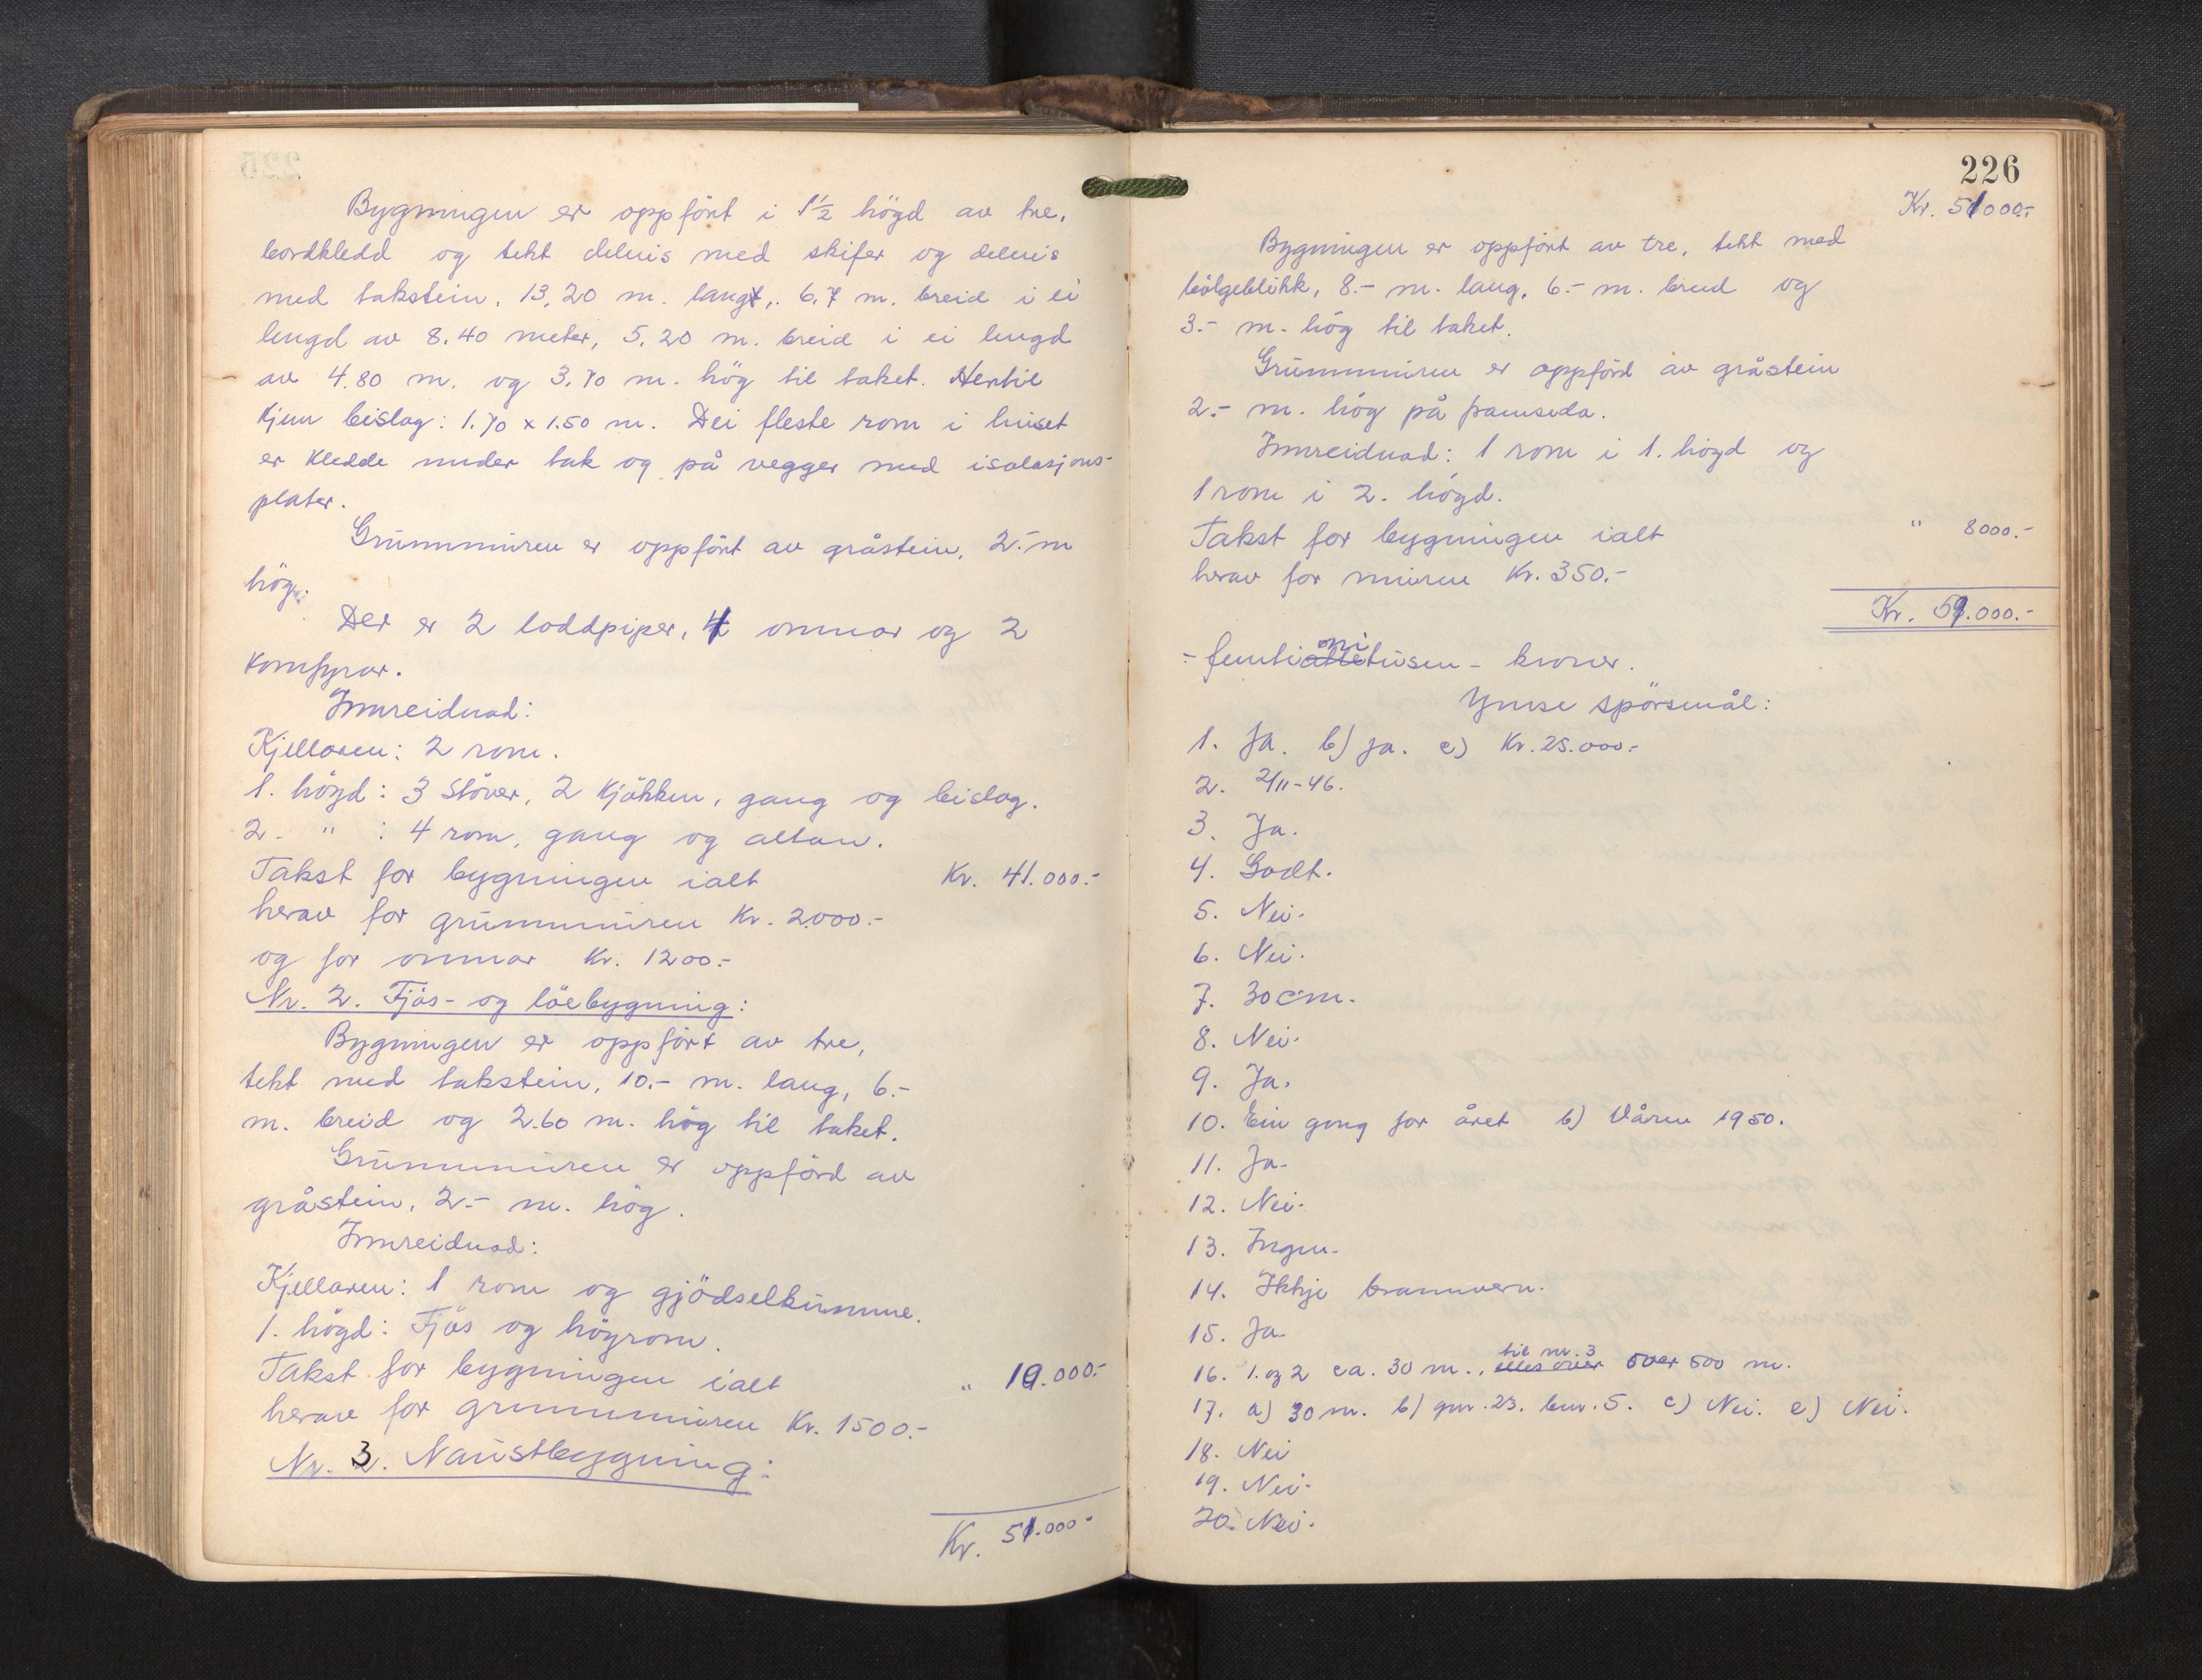 Bygningen er oppført i 1½ högd av tre,
bordkledd og tekt delvis med skifer og delvis
med takstein, 13,20 m. lang, 6,7 m. breid i ei
lengd av 8.40 meter, 5,20 m. breid i ei lengd
av 4.80 m. og 3,70 m. hög til taket. Hertil
kjem bislag: 1.70 x 1.50 m. Dei fleste rom i huset
er kledde under tak og på vegger med isolasjons-
plater.
Grunnmuren er oppført av gråstein, 2.- m
hög.
Der er 2 loddpiper, 4 omnar og 2
komfyrar.
Innreidnad:
Kjellaren: 2 rom.
1. högd: 3 stover, 2 kjökken, gang og bislag.
2. " : 4 rom, gang og altan.
Takst for bygningen ialt Kr. 41.000.-
herav for grunnmuren Kr. 2000.-
og for omnar Kr. 1200.-
Nr. 2. Fjös- og löebygning:
Bygningen er oppført av tre,
tekt med takstein, 10.- m. lang, 6.-
m. breid og 2.60 m. hög til taket.
Grunnmuren er oppförd av
gråstein, 2.- m. hög.
Innreidnad:
Kjellaren: 1 rom og gjödselkumme.
1. högd: Fjös og höyrom.
Takst for bygningen ialt " 10.000.-
herav for grunnmuren Kr. 1500.-
Nr. 3. Naustbygning:
Kr. 51.000-
226
Kr. 51000.-
Bygningen er oppført av tre, tekt med
bölgeblikk, 8.- m. lang, 6.- m. breid og
3.- m. hög til taket.
Grunnmuren er oppförd av gråstein
2.- m. hög på framsida.
Innreidnad: 1 rom i 1. högd og
1 rom i 2. högd.
Takst for bygningen ialt " 8000.-
herav for muren Kr. 350.-
Kr. 59.000.-
- femtiåttenitusen - kroner.
Ymse spörsmål:
1. Ja. b) Ja. c) Kr. 25.000.-
2. 2/11-46.
3. Ja.
4. Godt.
5. Nei.
6. Nei.
7. 30 cm.
8. Nei.
9. Ja.
10. Ein gong for året b) Våren 1950.
11. Ja.
12. Nei.
13. Ingen.
14. Ikkje brannvern.
15. Ja.
16. 1. og 2 ca. 30 m., elles over til nr. 3 over 500 m.
17. a) 30 m. b) gnr. 23. bnr. 5. c) Nei. e) Nei.
18. Nei
19. Nei.
20. Nei.